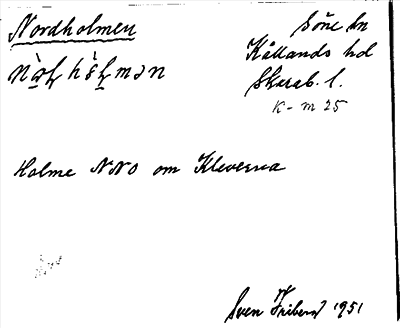 Nordholmen
Söne sn
Kållands hd
Skarab. l.
K-m 25
Holme NNO om Kleverna
Sven Friberg 1951